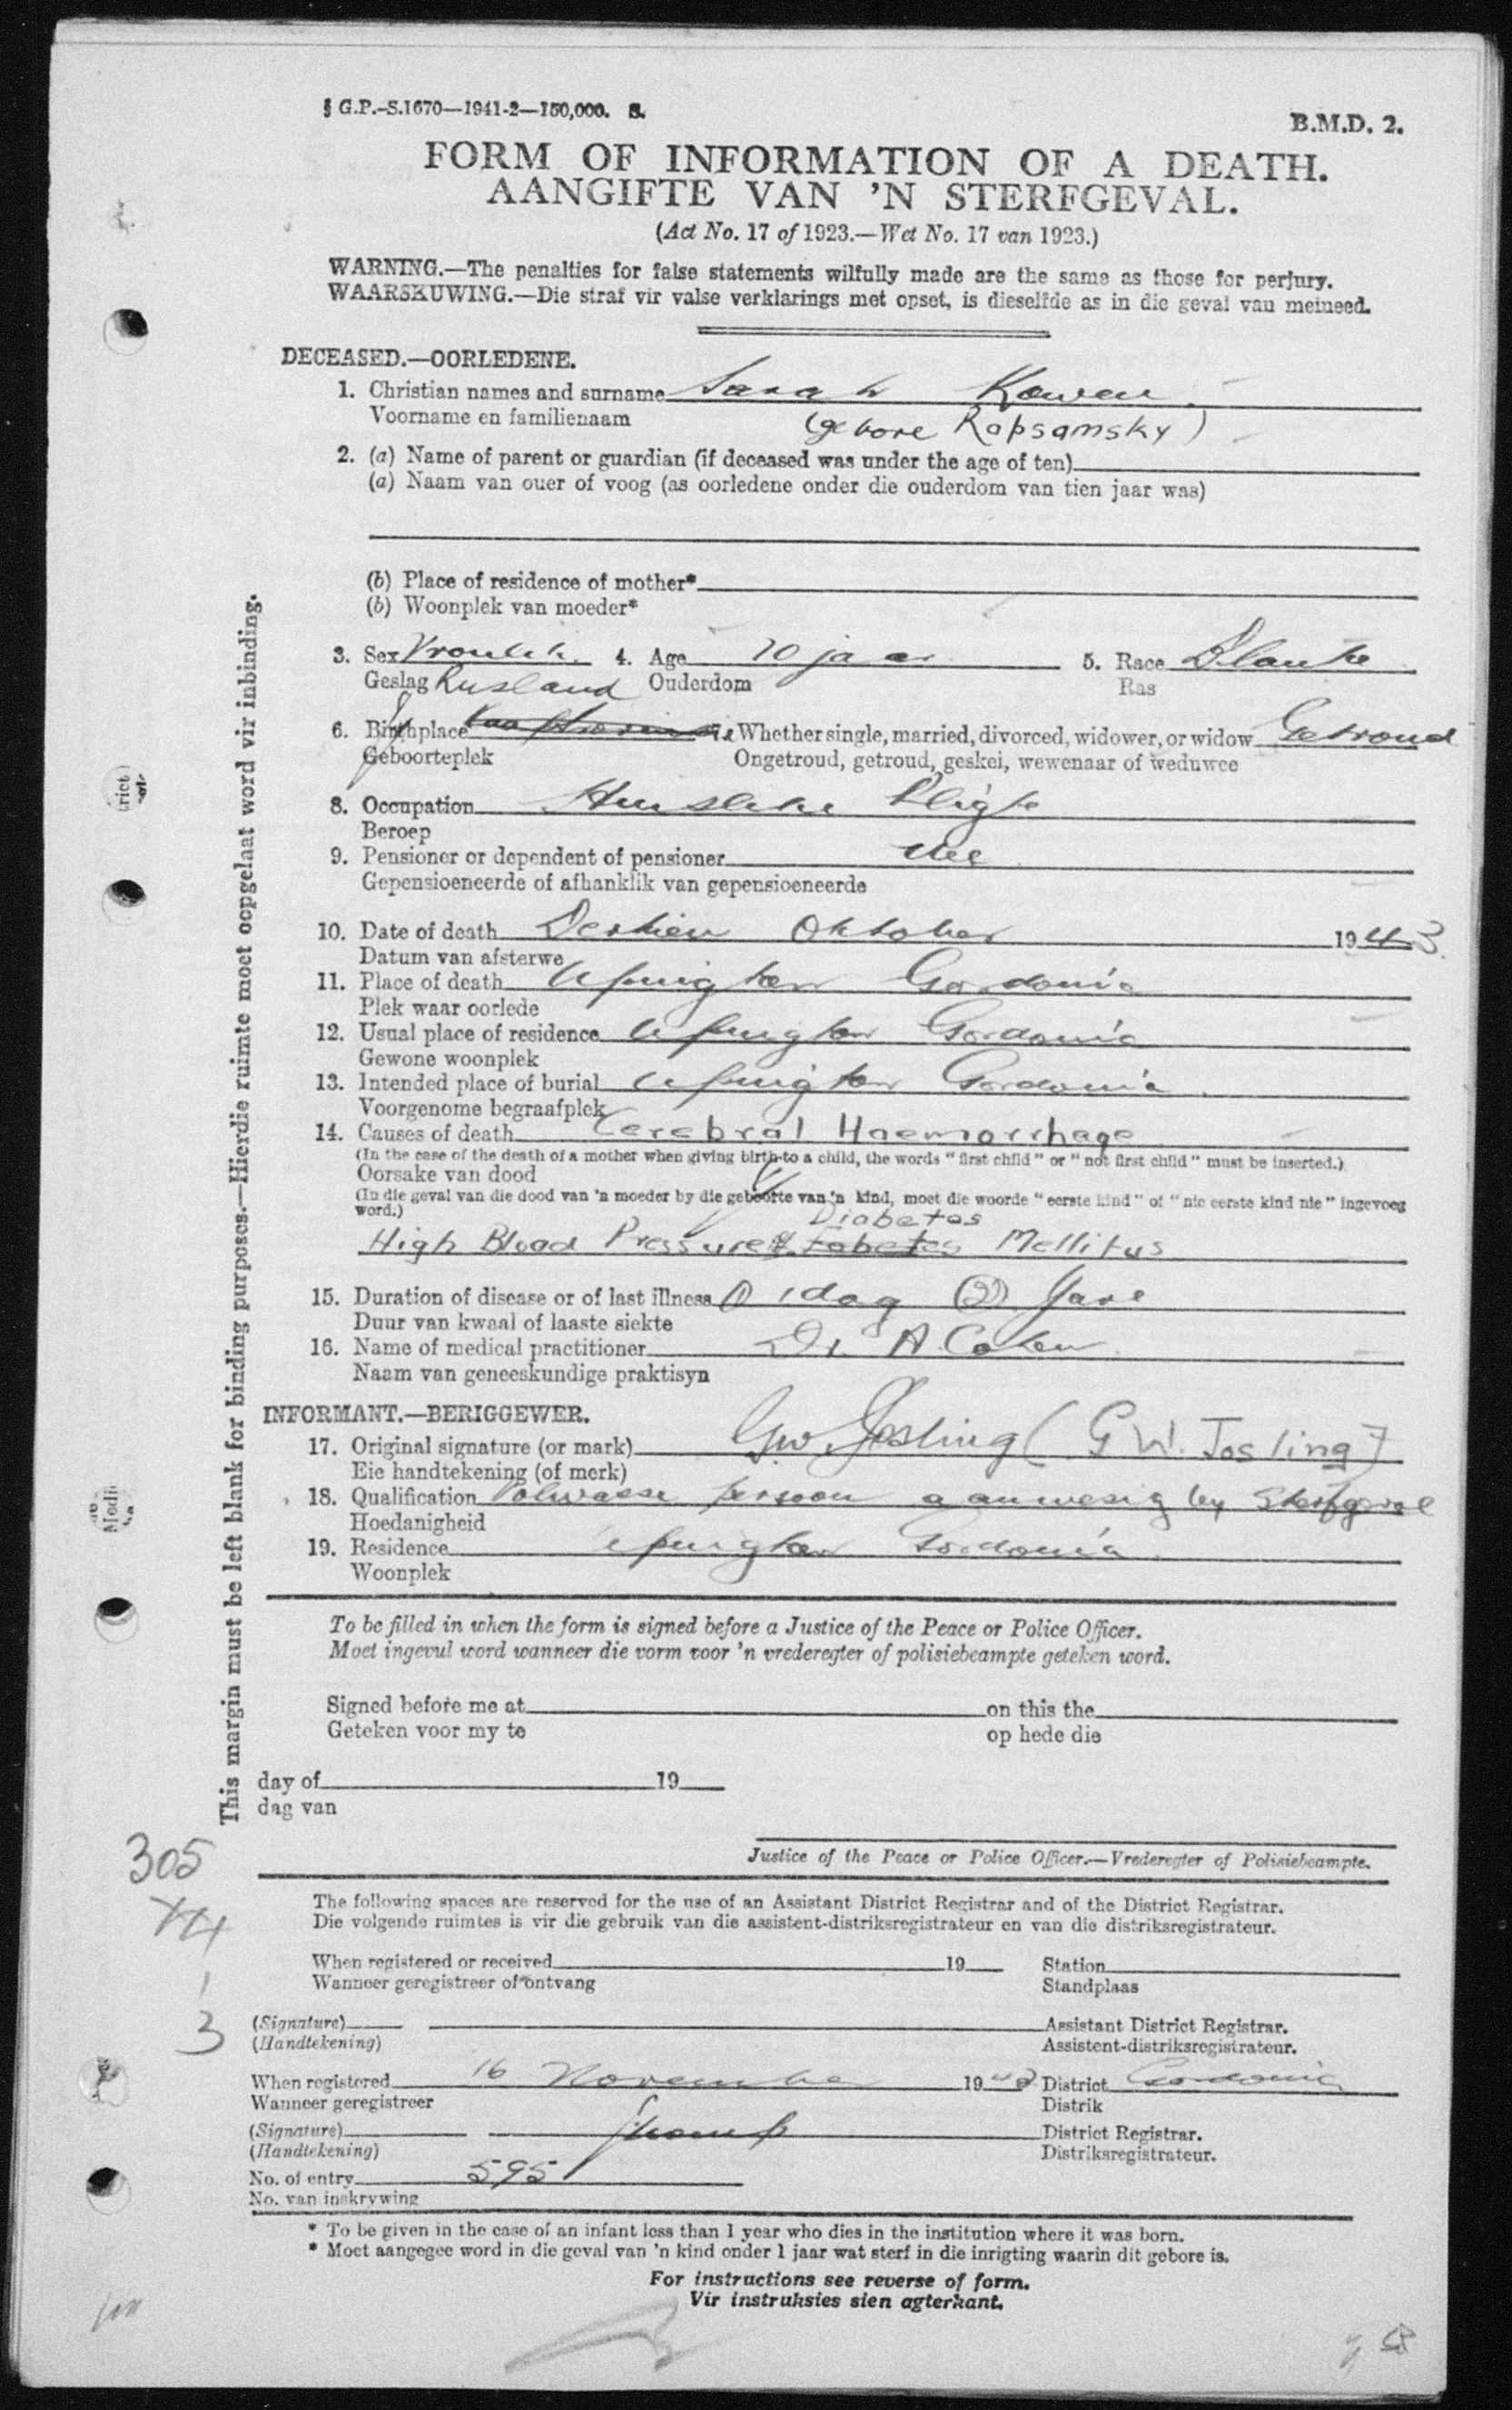 § G.P.-S.1670—1941-2—150,000. S.
B.M.D. 2.
FORM OF INFORMATION OF A DEATH.
AANGIFTE VAN 'N STERFGEVAL.
(Act No. 17 of 1923.—Wet No. 17 van 1923.)
WARNING.—The penalties for false statements wilfully made are the same as those for perjury.
WAARSKUWING.—Die straf vir valse verklarings met opset, is dieselfde as in die geval van meineed.
DECEASED.—OORLEDENE.
1. Christian names and surname Sarah Kowen.
Voorname en familienaam (gebore Rapsamsky)
2. (a) Name of parent or guardian (if deceased was under the age of ten)
(a) Naam van ouer of voog (as oorledene onder die ouderdom van tien jaar was)
(b) Place of residence of mother*
(b) Woonplek van moeder*
3. Sex Vroulik. 4. Age 70 jaar 5. Race Blanke
Geslag Rusland Ouderdom Ras
6. Birthplace 7. Whether single, married, divorced, widower, or widow Getroud
Geboorteplek Ongetroud, getroud, geskei, wewenaar of weduwee
8. Occupation Huislike Pligte
Beroep
9. Pensioner or dependent of pensioner Nee
Gepensioeneerde of afhanklik van gepensioeneerde
10. Date of death Dertien Oktober 1943.
Datum van afsterwe
11. Place of death Upington Gordonia
Plek waar oorlede
12. Usual place of residence Upington Gordonia
Gewone woonplek
13. Intended place of burial Upington Gordonia.
Voorgenome begraafplek
14. Causes of death Cerebral Haemorrhage
(In the case of the death of a mother when giving birth to a child, the words "first child" or "not first child" must be inserted.)
Oorsake van dood
(In die geval van die dood van 'n moeder by die geboorte van 'n kind, moet die woorde "eerste kind" of "nie eerste kind nie" ingevoeg
word.)
Diabetes
High Blood Pressure Mellitus
15. Duration of disease or of last illness ① 1 dag ② Jare
Duur van kwaal of laaste siekte
16. Name of medical practitioner Dr. A. Cohen
Naam van geneeskundige praktisyn
INFORMANT.—BERIGGEWER.
17. Original signature (or mark) GW Josling (G W. Josling)
Eie handtekening (of merk)
18. Qualification Volwasse persoon aanwesig by Sterfgeval
Hoedanigheid
19. Residence Upington Gordonia.
Woonplek
To be filled in when the form is signed before a Justice of the Peace or Police Officer.
Moet ingevul word wanneer die vorm voor 'n vrederegter of polisiebeampte geteken word.
Signed before me at on this the
Geteken voor my te op hede die
day of 19
dag van
Justice of the Peace or Police Officer.—Vrederegter of Polisiebeampte.
The following spaces are reserved for the use of an Assistant District Registrar and of the District Registrar.
Die volgende ruimtes is vir die gebruik van die assistent-distriksregistrateur en van die distriksregistrateur.
When registered or received 19 Station
Wanneer geregistreer of ontvang Standplaas
(Signature) Assistant District Registrar.
(Handtekening) Assistent-distriksregistrateur.
When registered 16 November 1943 District Gordonia
Wanneer geregistreer Distrik
(Signature) District Registrar.
(Handtekening) Distriksregistrateur.
No. of entry 595
No. van inskrywing
* To be given in the case of an infant less than 1 year who dies in the institution where it was born.
* Moet aangegee word in die geval van 'n kind onder 1 jaar wat sterf in die inrigting waarin dit gebore is.
For instructions see reverse of form.
Vir instruksies sien agterkant.
This margin must be left blank for binding purposes.—Hierdie ruimte moet oopgelaat word vir inbinding.
305
3